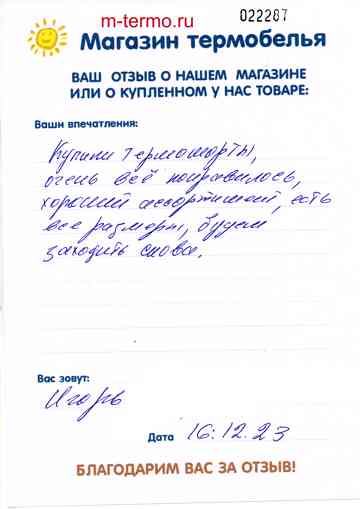 m-termo.ru
022287
Магазин термобелья
ВАШ ОТЗЫВ О НАШЕМ МАГАЗИНЕ
ИЛИ О КУПЛЕННОМ У НАС ТОВАРЕ:
Ваши впечатления:
Купили термошорты,
очень всё понравилось,
хороший ассортимент, есть
все размеры, будем
заходить снова.
Вас зовут:
Игорь
Дата 16.12.23
БЛАГОДАРИМ ВАС ЗА ОТЗЫВ!